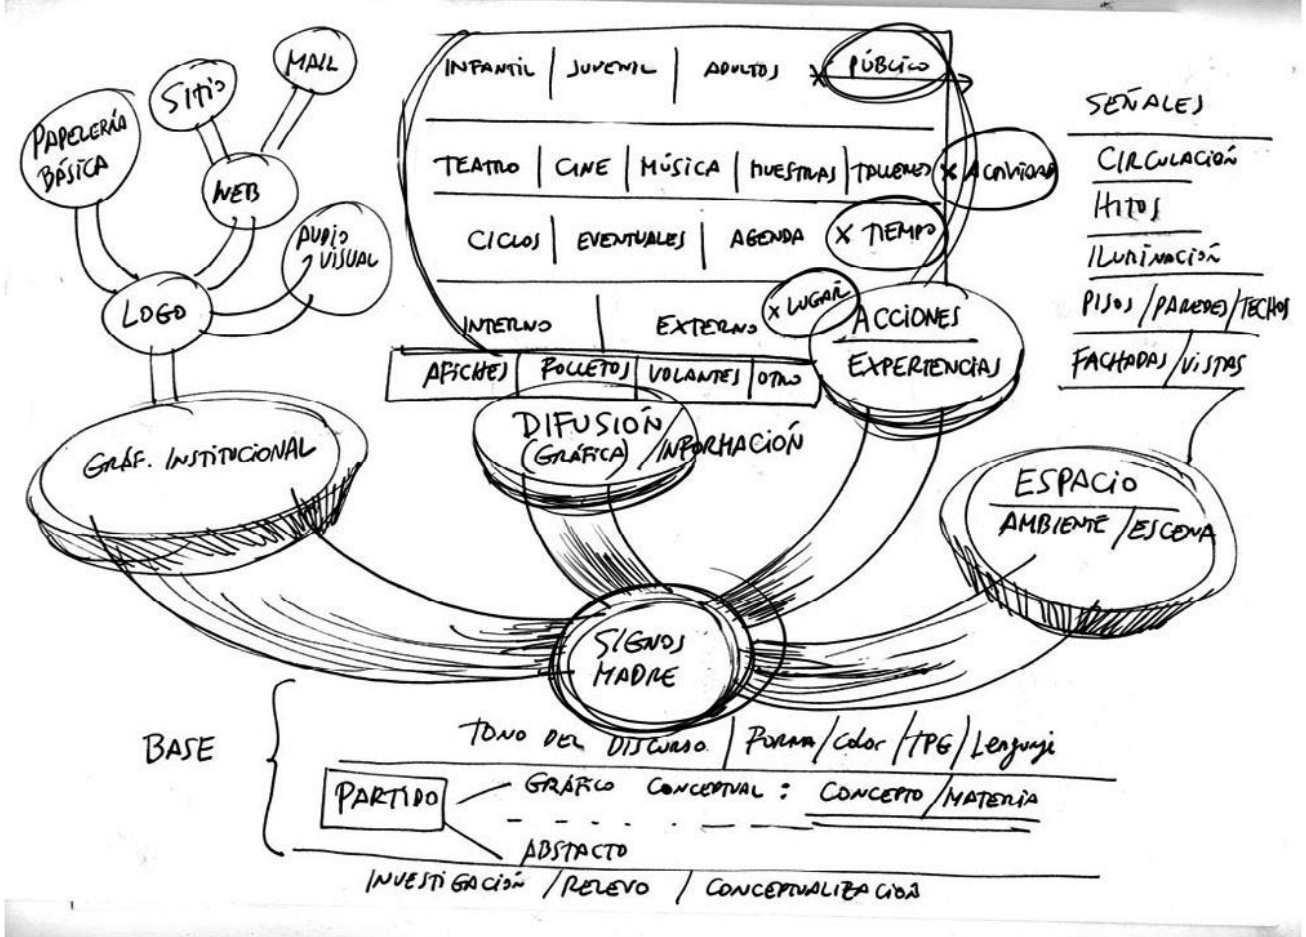 MAIL
SITIO
PAPELERÍA
BÁSICA
WEB
AUDIO
VISUAL
LOGO
GRÁF. INSTITUCIONAL
INFANTIL | JUVENIL | ADULTOS X PÚBLICO
TEATRO | CINE | MÚSICA | MUESTRAS | TALLERES X ACTIVIDAD
CICLOS | EVENTUALES | AGENDA X TIEMPO
INTERNO | EXTERNO X LUGAR
AFICHES | FOLLETOS | VOLANTES | OTRO
DIFUSIÓN
(GRÁFICA) / INFORMACIÓN
ACCIONES
EXPERIENCIAS
SEÑALES
CIRCULACIÓN
HITOS
ILUMINACIÓN
PISOS / PAREDES / TECHOS
FACHADAS / VISTAS
ESPACIO
AMBIENTE / ESCENA
SIGNOS
MADRE
BASE
TONO DEL DISCURSO | FORMA / Color / TPG / Lenguaje
PARTIDO
GRÁFICO CONCEPTUAL : CONCEPTO / MATERIA
ABSTACTO
INVESTIGACIÓN / RELEVO / CONCEPTUALIZACIÓN